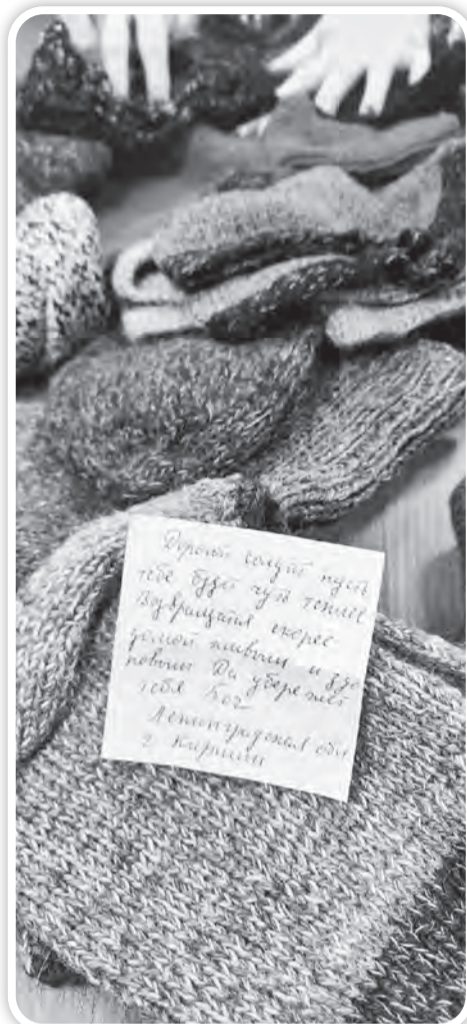 Дорогой солдат пусть
тебе будет чуть теплее
Возвращайся скорее
домой живым и здо
ровым Да убережет
тебя Бог
Ленинградская обл
г Кириши